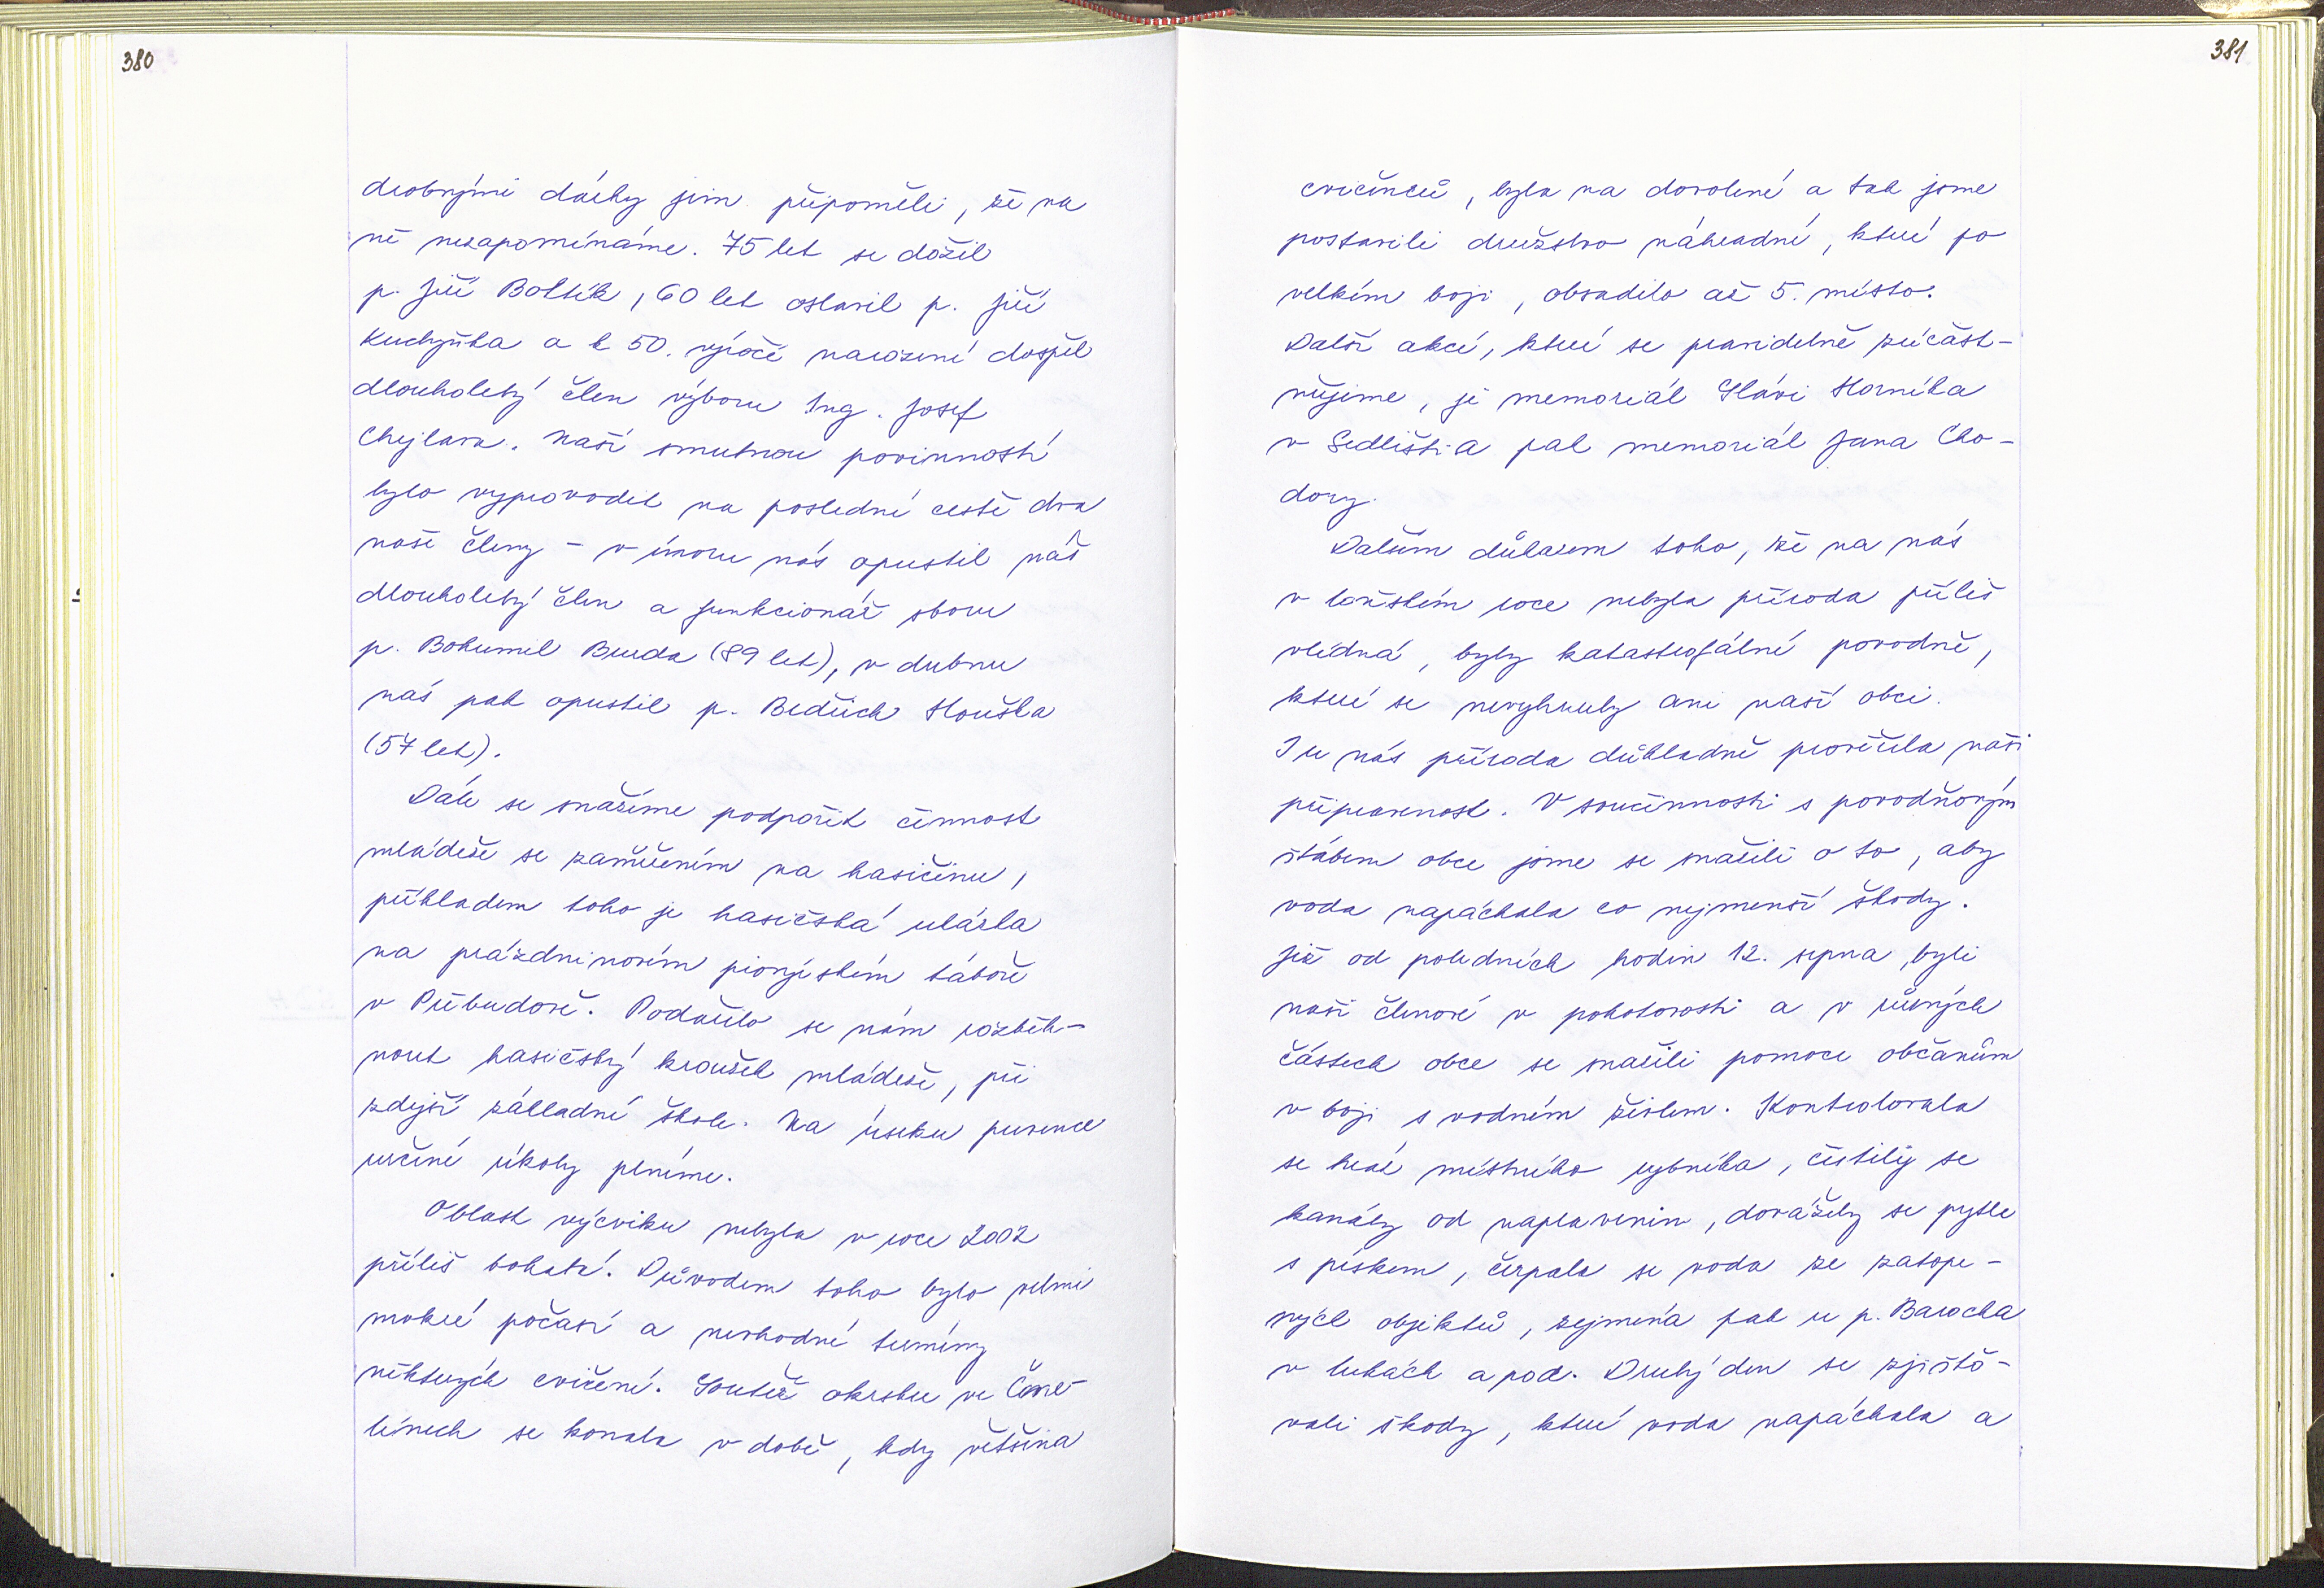 380
drobnými dárky jim připoměli, že na
ně nezapomínáme. 75 let se dožil
p. Jiří Boltík, 60 let oslavil p. Jiří
Kuchyňka a k 50. výročí narození dospěl
dlouholetý člen výboru Ing. Josef
Chejlava. Naší smutnou povinností
bylo vyprovodit na poslední cestě dva
naše členy - v únoru nás opustil náš
dlouholetý člen a funkcionář sboru
p. Bohumil Burda (89 let), v dubnu
nás pak opustil p. Bedřich Houška
(57 let).
Dále se snažíme podpořit činnost
mládeže se zaměřením na hasičinu,
příkladem toho je hasičská ukázka
na prázdninovém pionýrském táboře
v Přibudově. Podařilo se nám rozběh-
nout hasičský kroužek mládeže, při
zdejší základní škole. Na úseku prevence
určené úkoly plníme.
Oblast výcviku nebyla v roce 2002
příliš bohatá. Důvodem toho bylo velmi
mokré počasí a nevhodné termíny
některých cvičení. Soutěž okrsku ve Čme-
línech se konala v době, kdy většina
381
cvičenců, byla na dovolené a tak jsme
postavili družstvo náhradní, které po
velkém boji, obsadilo až 5. místo.
Další akcí, které se pravidelně zúčast-
ňujeme, je memoriál Slávi Horníka
v Sedlišti a pak memoriál Jana Cho-
dory.
Dalším důkazem toho, že na nás
v loňském roce nebyla příroda příliš
vlídná, byly katastrofální povodně,
které se nevyhnuly ani naší obci.
I u nás příroda důkladně prověřila naši
připravenost. V součinnosti s povodňovým
štábem obce jsme se snažili o to, aby
voda napáchala co nejmenší škody.
Již od poledních hodin 12. srpna byli
naši členové v pohotovosti a v různých
částech obce se snažili pomoci občanům
v boji s vodním živlem. Kontrolovala
se hráz místního rybníka, čistily se
kanály od naplavenin, dovážely se pytle
s pískem, čerpala se voda ze zatope-
ných objektů, zejména pak u p. Barocha
v lukách a pod. Druhý den se zjišťo-
vali škody, které voda napáchala a